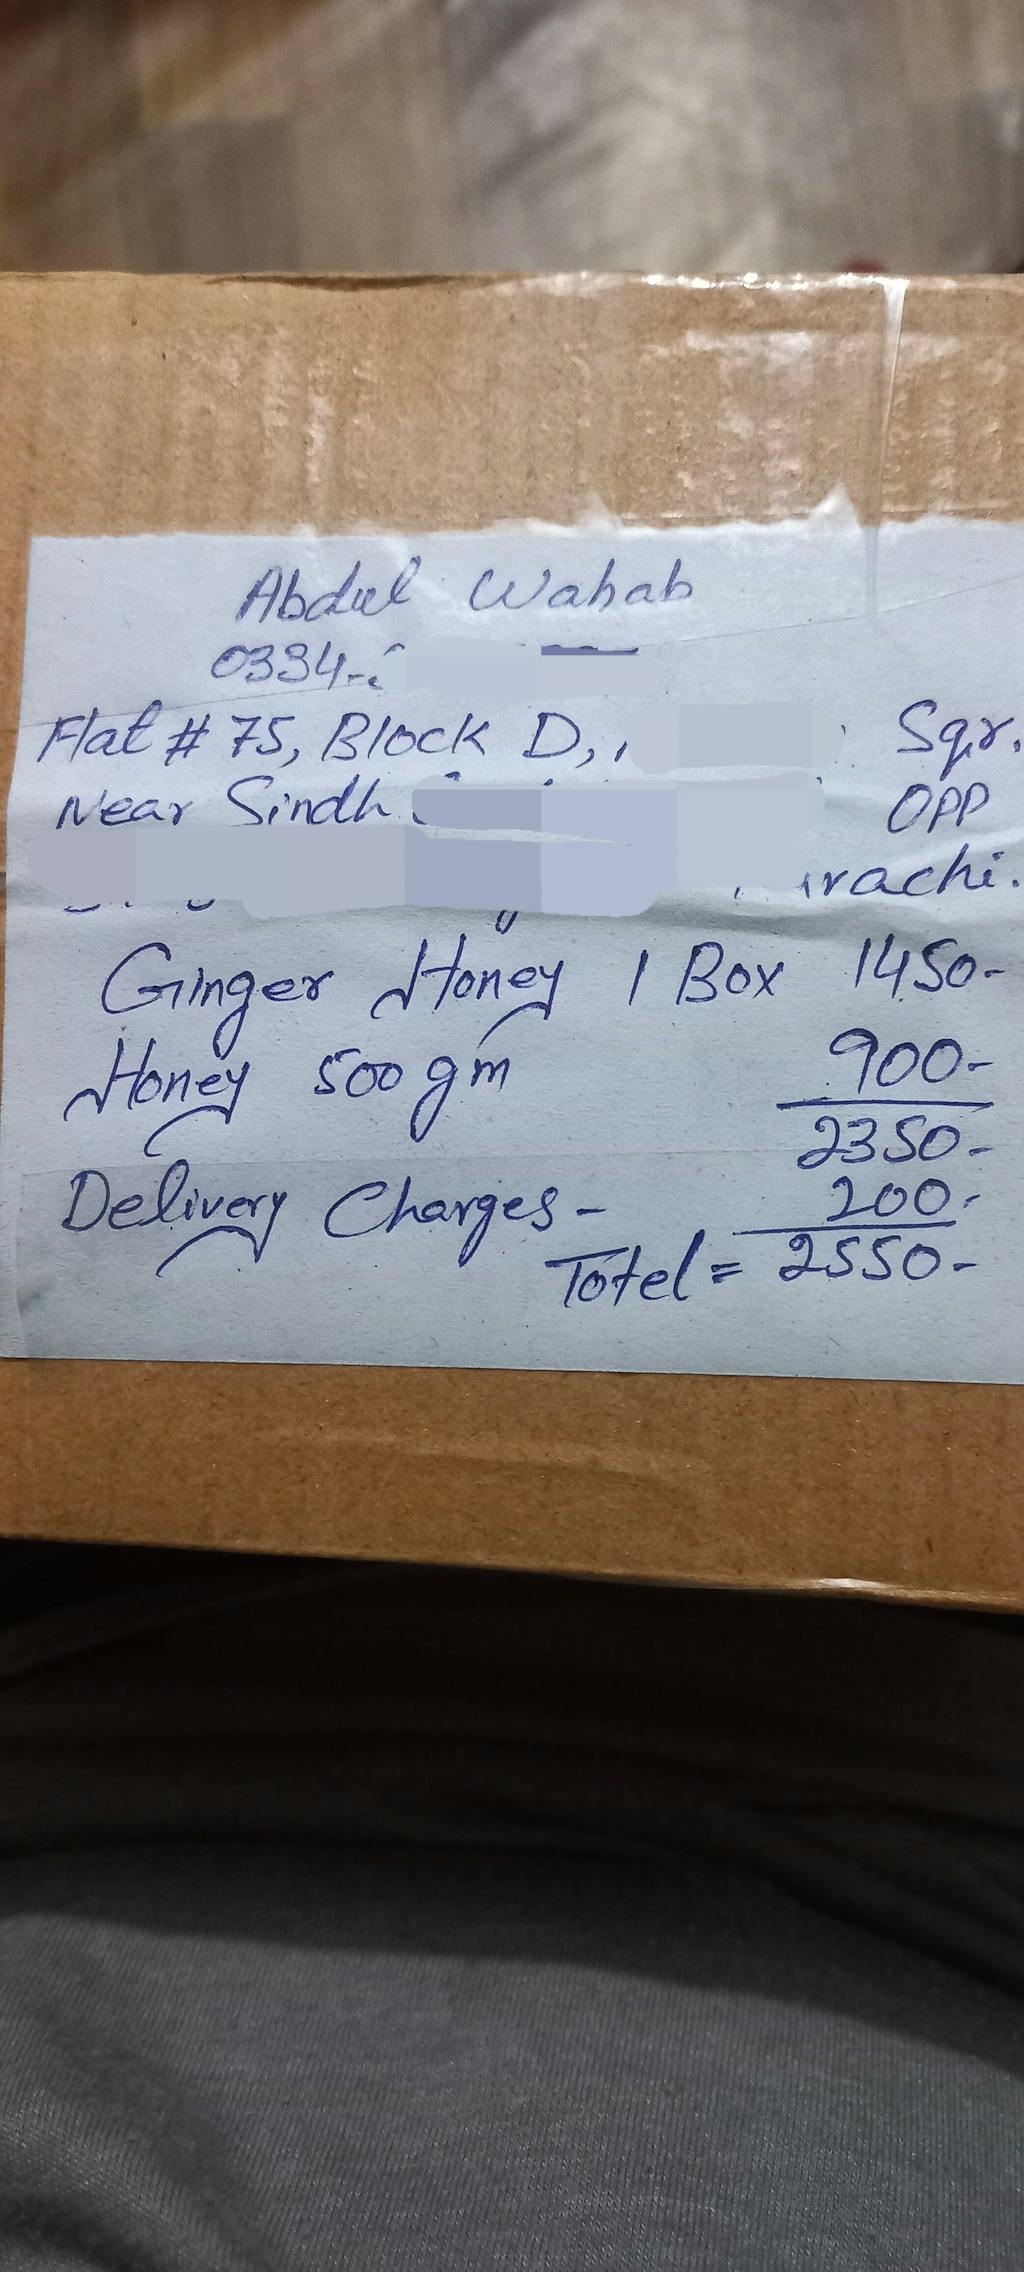 Abdul Wahab
0334-
Flat # 75, Block D, Sqr.
Near Sindh OPP
Ginger Honey 1 Box 1450-
Honey 500 gm 900-
2350-
Delivery Charges - 200-
Totel = 2550-